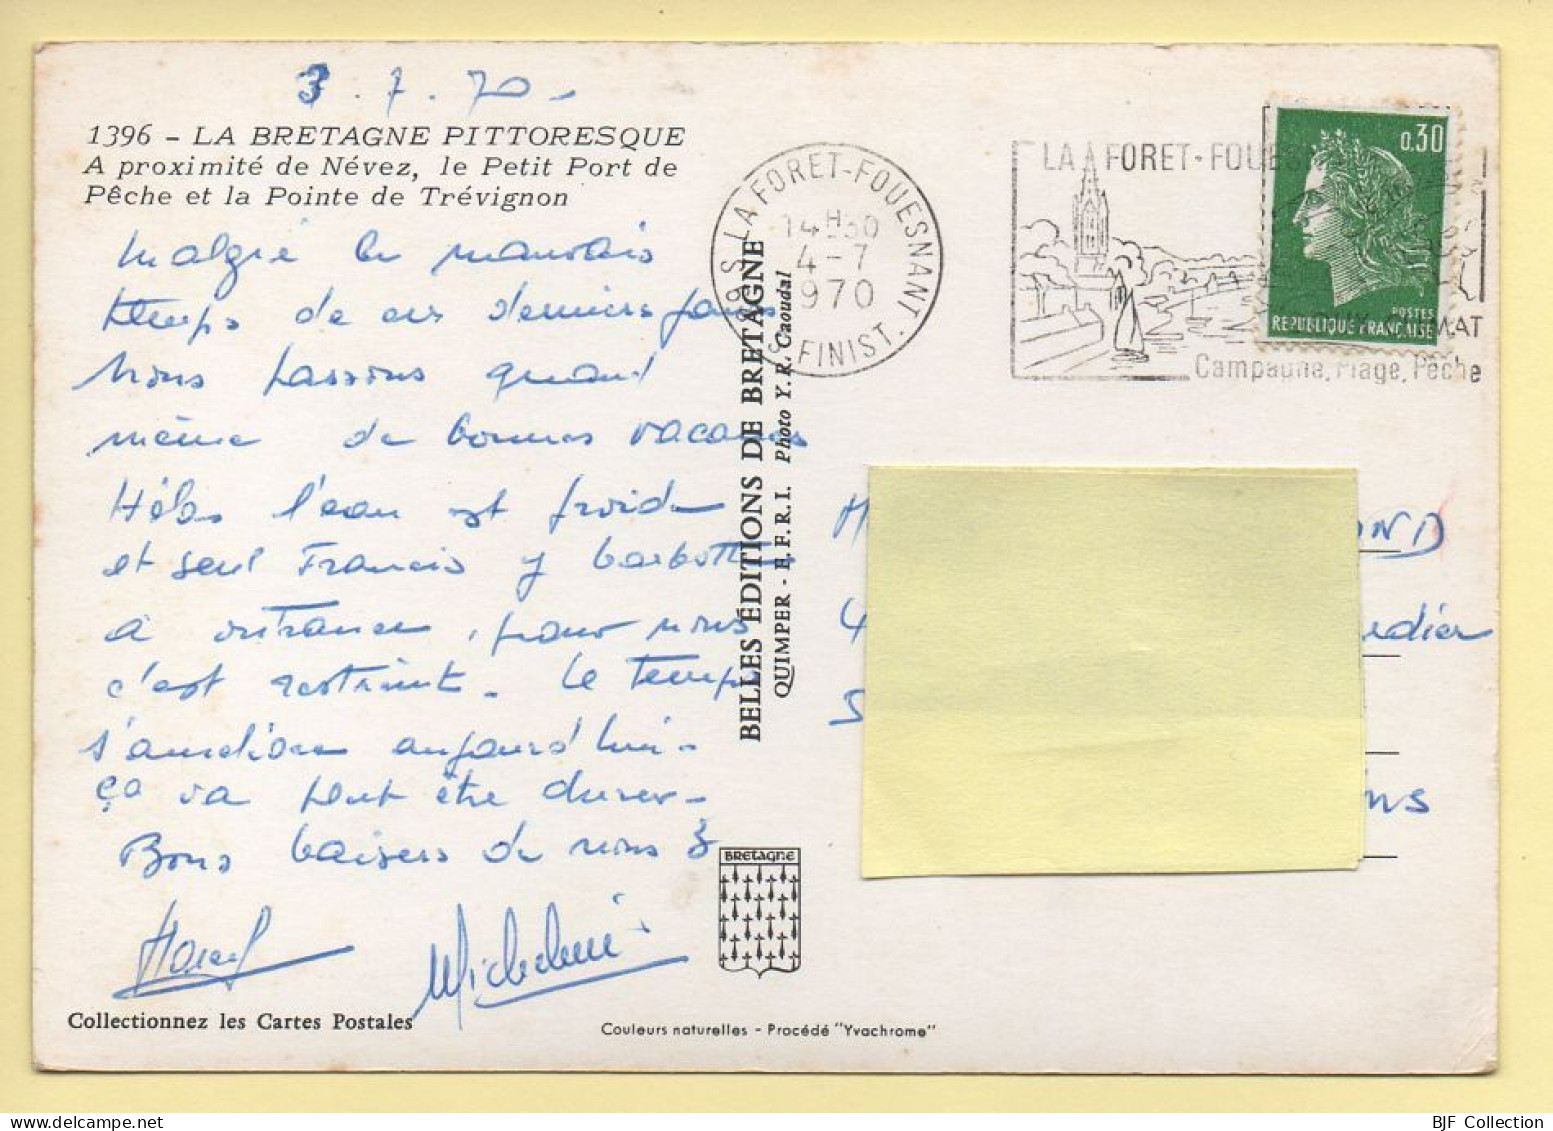 3.7.70-
1396 - LA BRETAGNE PITTORESQUE
A proximité de Névez, le Petit Port de
Pêche et la Pointe de Trévignon
Malgré le mauvais
temps de ces derniers jours
Nous passons quand
même de bonnes vacances
Hélas l'eau est froide
et seul Francis y barbotte
à outrance, pour nous
c'est restreint. Le temps
s'améliore aujourd'hui -
ça va peut être durer -
Bons baisers de nous 3
Michelini
Collectionnez les Cartes Postales
BELLES ÉDITIONS DE BRETAGNE
QUIMPER - E.F.R.I. Photo Y. R. Caoudal
BRETAGNE
Couleurs naturelles - Procédé "Yvachrome"
29S LA FORET-FOUESNANT
14H30
4-7
1970
S. FINIST.
LA FORET-FOUESN
MAT
Campagne, Plage, Pêche
0,30
POSTES
REPUBLIQUE FRANÇAISE
M OND
4 rdier
5
ns
BJF Collection